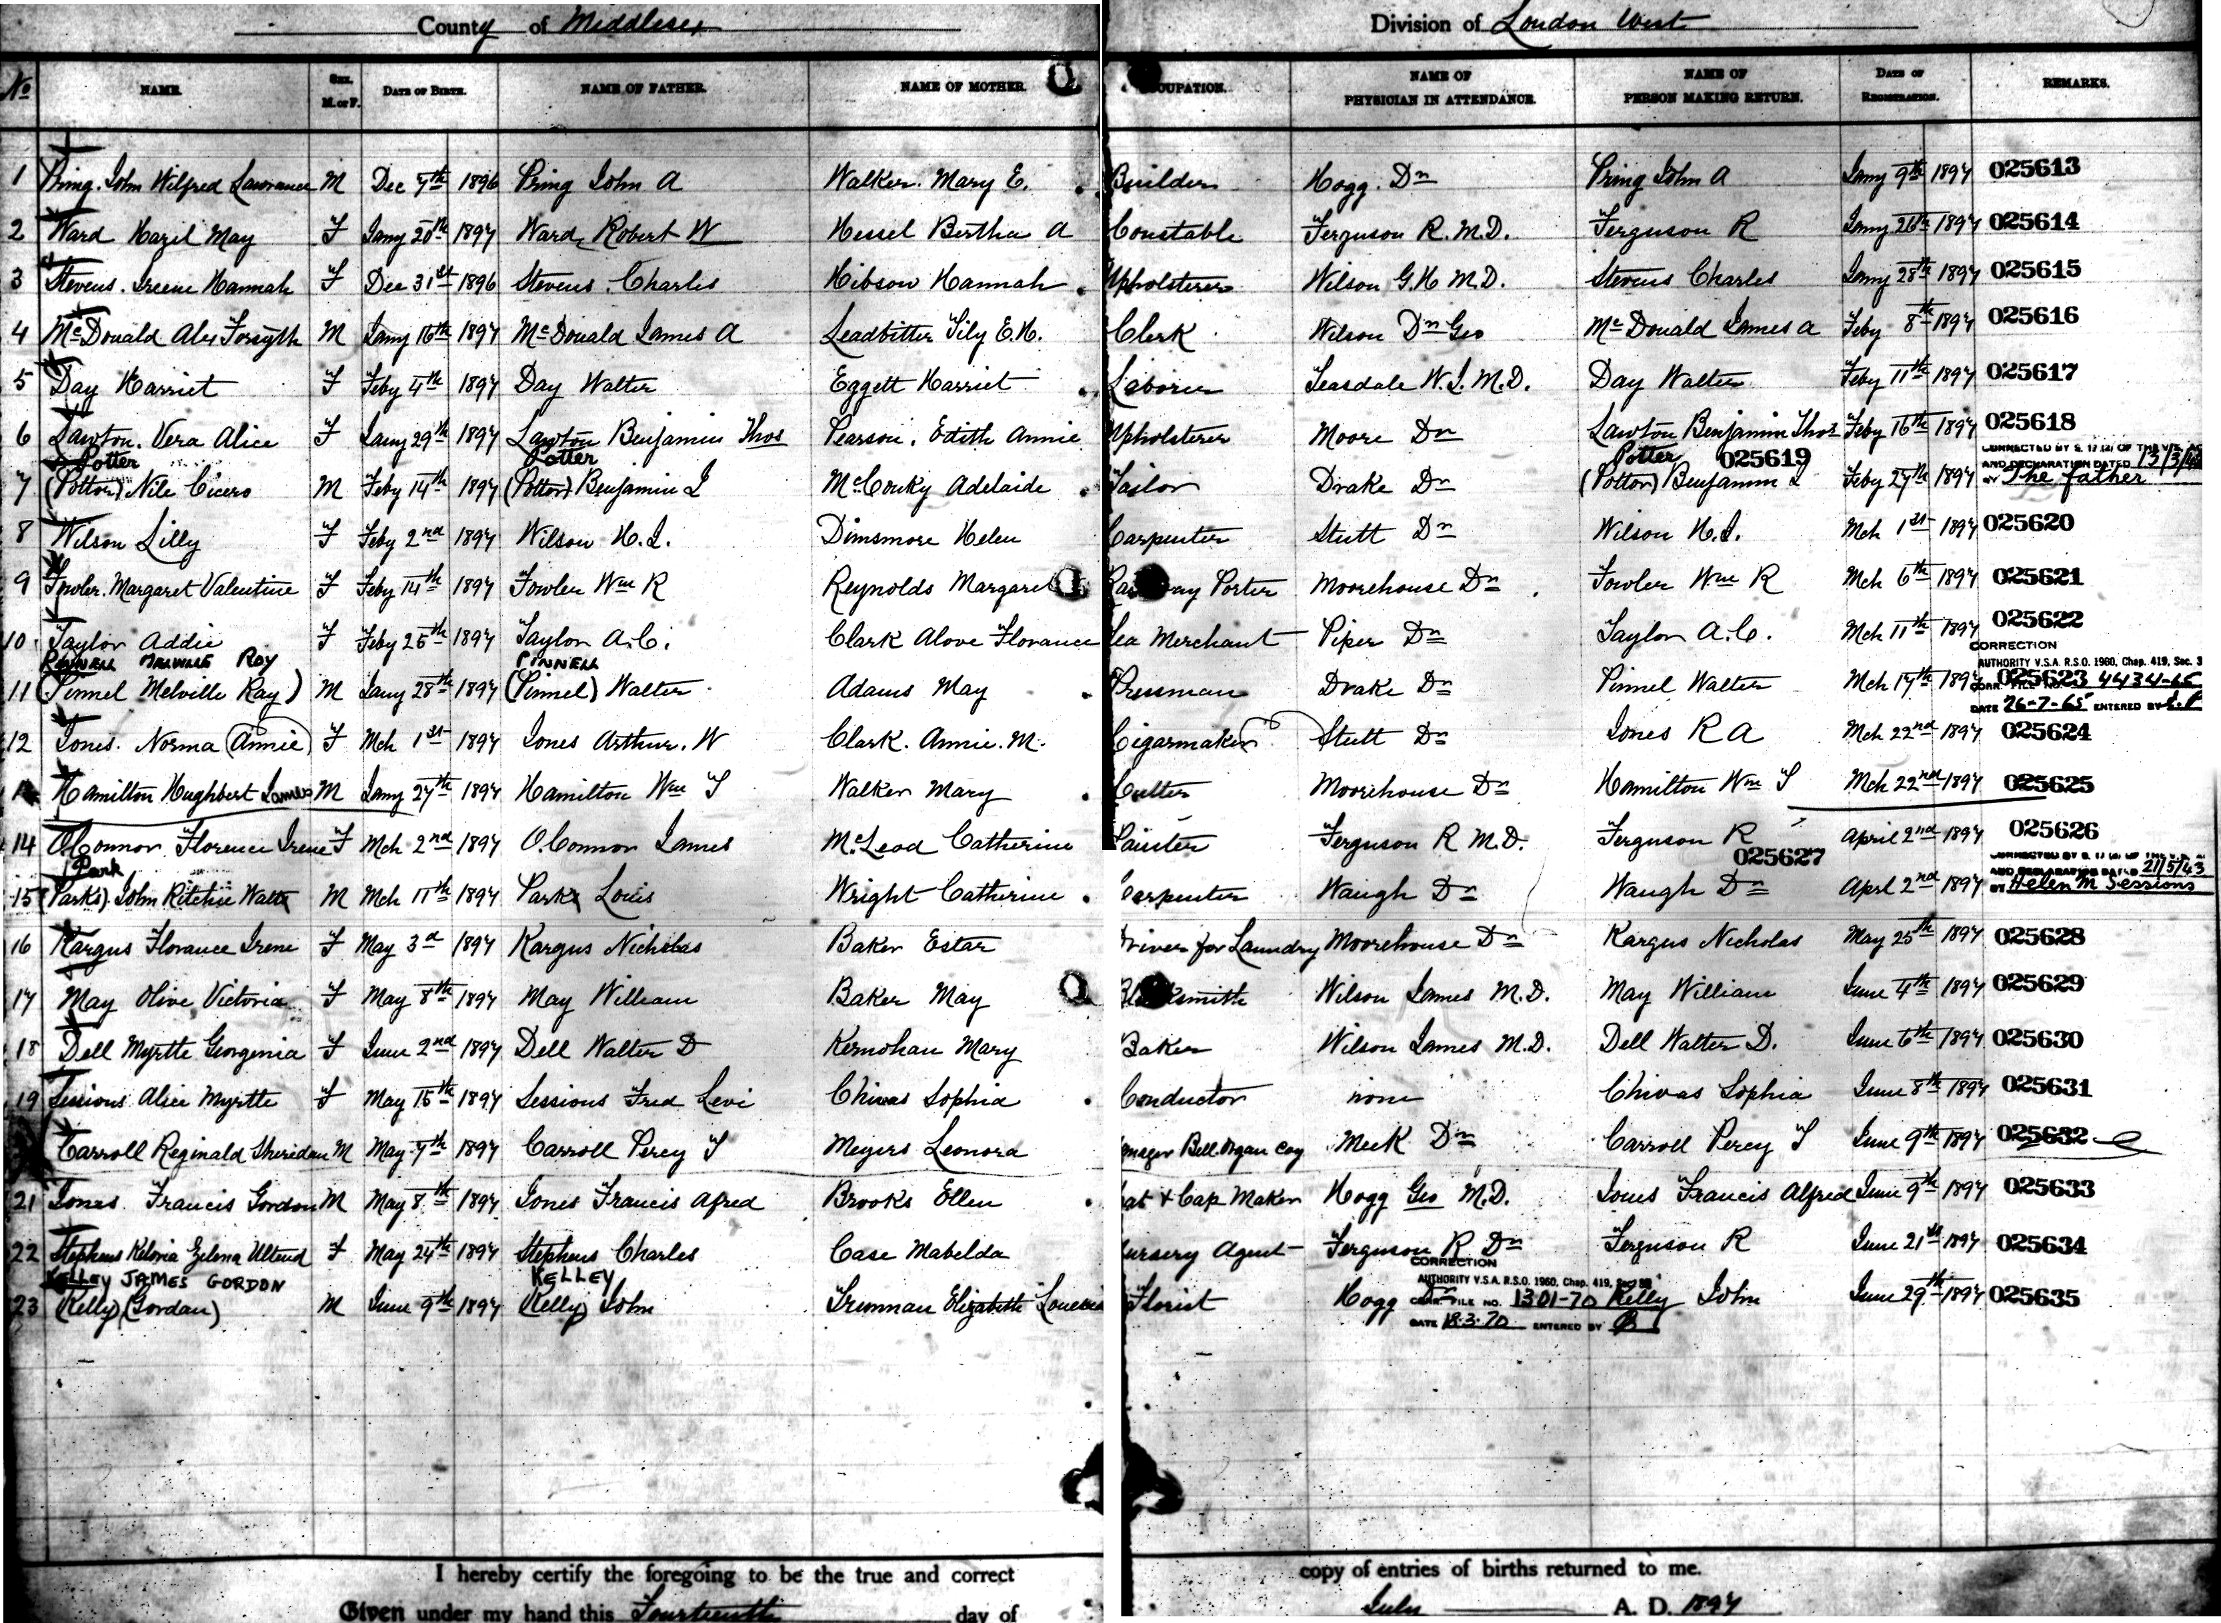 County of Middlesex Division of London West
No NAME. SEX. M. or F. DATE OF BIRTH. NAME OF FATHER. NAME OF MOTHER. OCCUPATION. NAME OF PHYSICIAN IN ATTENDANCE. NAME OF PERSON MAKING RETURN. DATE OF REGISTRATION. REMARKS.
1 Pring. John Wilfred Lawrance M Dec 7th 1896 Pring John A Walker. Mary E. Builder Hogg. Dr Pring John A Jany 9th 1897 025613
2 Ward Hazel May F Jany 20th 1897 Ward, Robert W Hessel Bertha A Constable Ferguson R. M.D. Ferguson R Jany 26th 1897 025614
3 Stevens. Ireene Hannah F Dec 31st 1896 Stevens. Charles Hibson Hannah Upholsterer Wilson G.H M.D. Stevens Charles Jany 28th 1897 025615
4 McDonald Alex Forsyth M Jany 16th 1897 McDonald James A Leadbitter Tily E.H. Clerk Wilson Dr Geo McDonald James A Feby 8th 1897 025616
5 Day Harriet F Feby 4th 1897 Day Walter Eggett Harriet Laborer Teasdale W.J. M.D. Day Walter Feby 11th 1897 025617
6 Lawton. Vera Alice F Jany 29th 1897 Lawton Benjamin Thos Pearson. Edith Annie Upholsterer Moore Dr Lawton Benjamin Thos Feby 16th 1897 025618
Potter Potter Potter 025619 CORRECTED BY S. 17 (2) OF THE V.S. AC
AND DECLARATION DATED 13/3/
7 (Potton) Nile Cicero M Feby 14th 1897 (Potton) Benjamin J McConky Adelaide Tailor Drake Dr (Potton) Benjamin J Feby 27th 1897 BY The father
8 Wilson Lilly F Feby 2nd 1897 Wilson H.J. Dinsmore Helen Carpenter Stutt Dr Wilson H.J. Mch 1st 1897 025620
9 Fowler. Margaret Valentine F Feby 14th 1897 Fowler Wm R Reynolds Margaret Porter Moorehouse Dr Fowler Wm R Mch 6th 1897 025621
10 Taylor Addie F Feby 25th 1897 Taylor A.C. Clark Alove Florance Tea Merchant Piper Dr Taylor A.C. Mch 11th 1897 025622
CORRECTION
PINNELL MELVILLE ROY PINNELL AUTHORITY V.S.A. R.S.O. 1960, Chap. 419, Sec. 3
11 (Pinnel Melville Ray) M Jany 28th 1897 (Pinnel) Walter Adams May Pressman Drake Dr Pinnel Walter Mch 17th 1897 025623 4434-65
DATE 26-7-65 ENTERED BY
12 Jones. Norma (Annie) F Mch 1st 1897 Jones Arthur. W Clark. Annie. M. Cigarmaker Stutt Dr Jones R A Mch 22nd 1897 025624
Hamilton Hughbert James M Jany 27th 1897 Hamilton Wm T Walker Mary Cutter Moorehouse Dr Hamilton Wm T Mch 22nd 1897 025625
14 O.Connor Florence Irene F Mch 2nd 1897 O.Connor James McLeod Catherine Painter Ferguson R M.D. Ferguson R April 2nd 1897 025626
Park 025627 CORRECTED BY S. 17
AND DECLARATION DATED 21/5/43
15 (Parks) John Ritchie Walter M Mch 11th 1897 Parks Louis Wright Catherine Carpenter Waugh Dr Waugh Dr Aprl 2nd 1897 BY Helen M Sessions
16 Kargus Florance Irene F May 3d 1897 Kargus Nicholas Baker Ester Driver for Laundry Moorehouse Dr Kargus Nicholas May 25th 1897 025628
17 May Olive Victoria F May 8th 1897 May William Baker May Blacksmith Wilson James M.D. May William June 4th 1897 025629
18 Dell Myrtle Georgenia F June 2nd 1897 Dell Walter D Kernohan Mary Baker Wilson James M.D. Dell Walter D. June 6th 1897 025630
19 Sessions Alice Myrtle F May 15th 1897 Sessions Fred Levi Chivas Sophia Conductor none Chivas Sophia June 8th 1897 025631
Carroll Reginald Sheridan M May 7th 1897 Carroll Percy T Meyers Leonora Bell Organ Coy Meek Dr Carroll Percy T June 9th 1897 025632
21 Jones Francis Gordon M May 8th 1897 Jones Francis Afred Brooks Ellen Hat & Cap Maker Hogg Geo M.D. Jones Francis Alfred June 9th 1897 025633
22 Stephens F May 24th 1897 Stephens Charles Case Mabelda Nursery Agent Ferguson R Dr Ferguson R June 21st 1897 025634
CORRECTION
KELLEY JAMES GORDON KELLEY AUTHORITY V.S.A. R.S.O. 1960, Chap. 419, Sec.
23 (Kelly) (Gordan) M June 9th 1897 (Kelly) John Trunnan Elizabeth Florist Hogg Dr CORR. FILE NO. 1301-70 Kelly John June 29th 1897 025635
DATE 18.3.70 ENTERED BY
I hereby certify the foregoing to be the true and correct copy of entries of births returned to me.
Given under my hand this Fourteenth day of July A. D. 1897